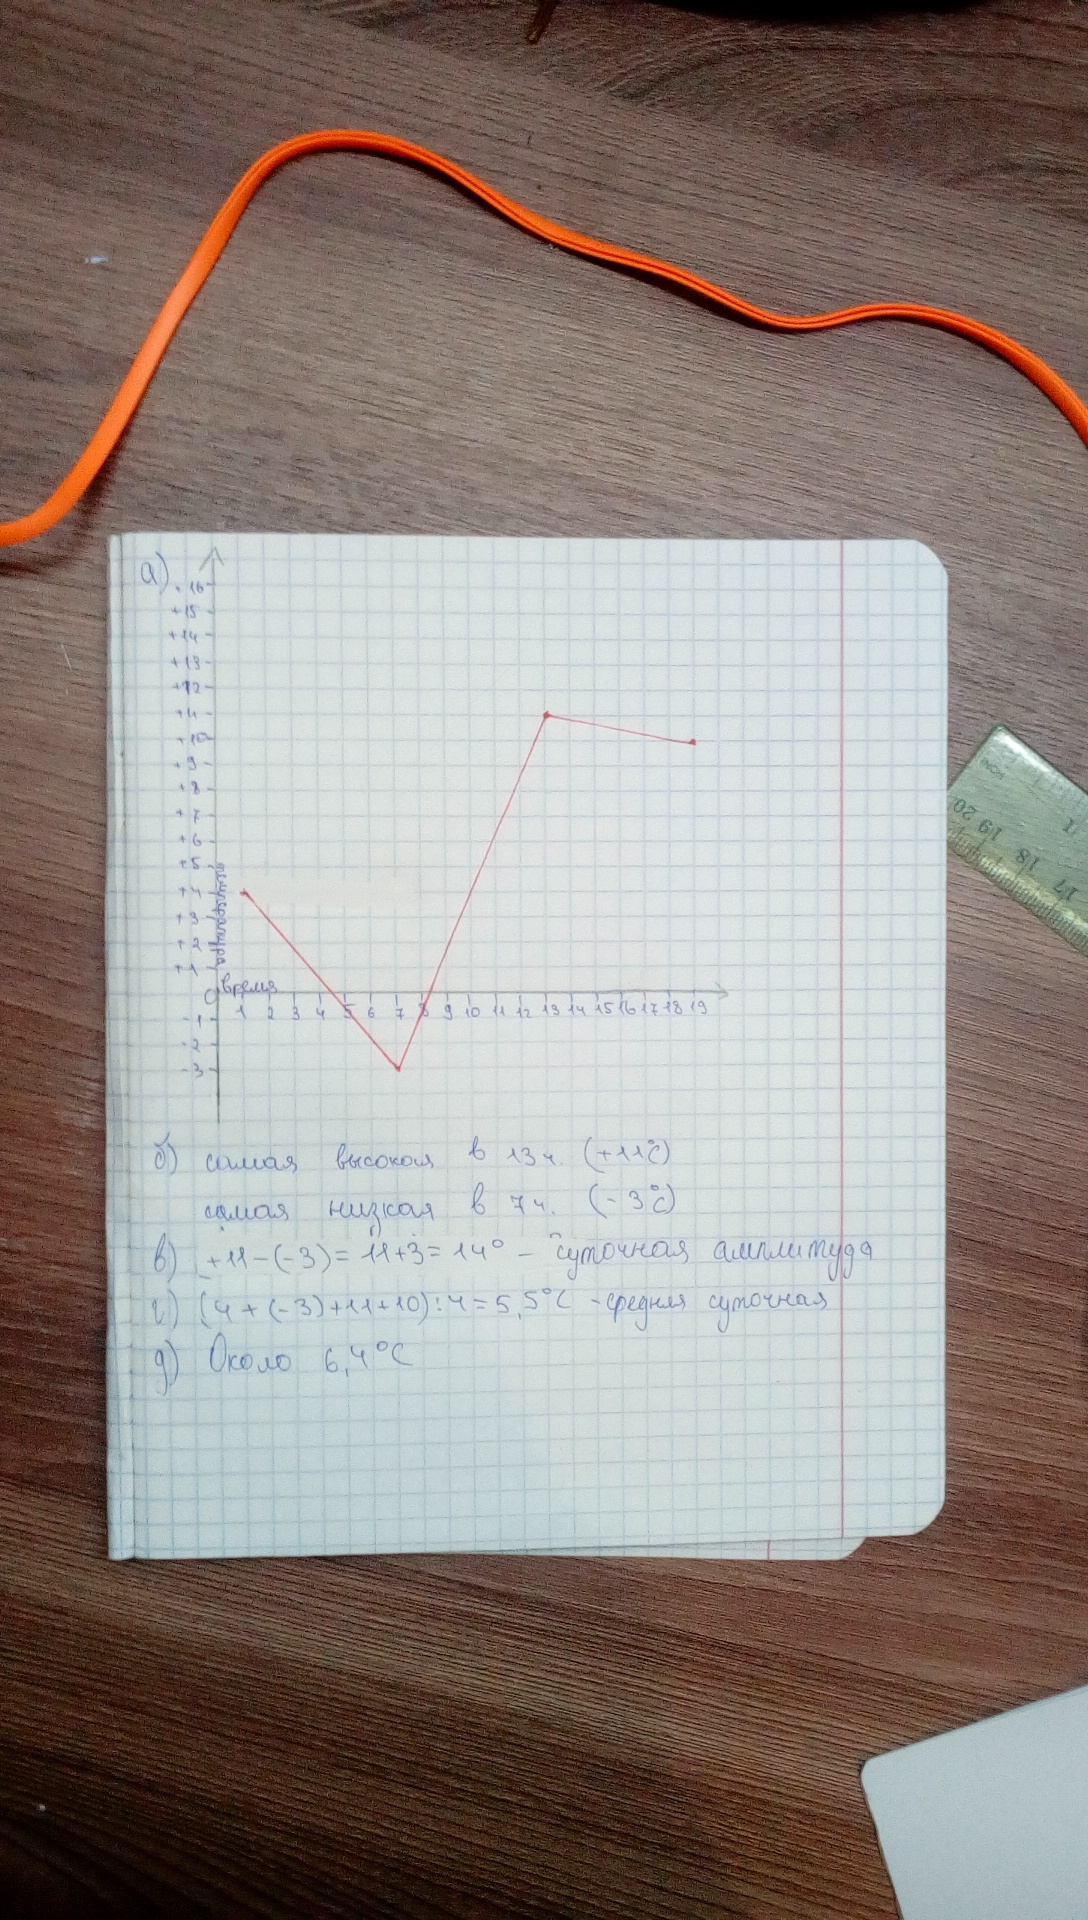 а)
+16
+15
+14
+13
+12
+11
+10
+9
+8
+7
+6
+5
+4
+3
+2
+1
температура
время
0 1 2 3 4 5 6 7 8 9 10 11 12 13 14 15 16 17 18 19
-1
-2
-3
б) самая высокая в 13ч. (+11°C)
самая низкая в 7ч. (-3°C)
в) +11-(-3)=11+3=14° - суточная амплитуда
г) (4+(-3)+11+10):4=5,5°C -средняя суточная
д) Около 6,4°C
19 20
18
17